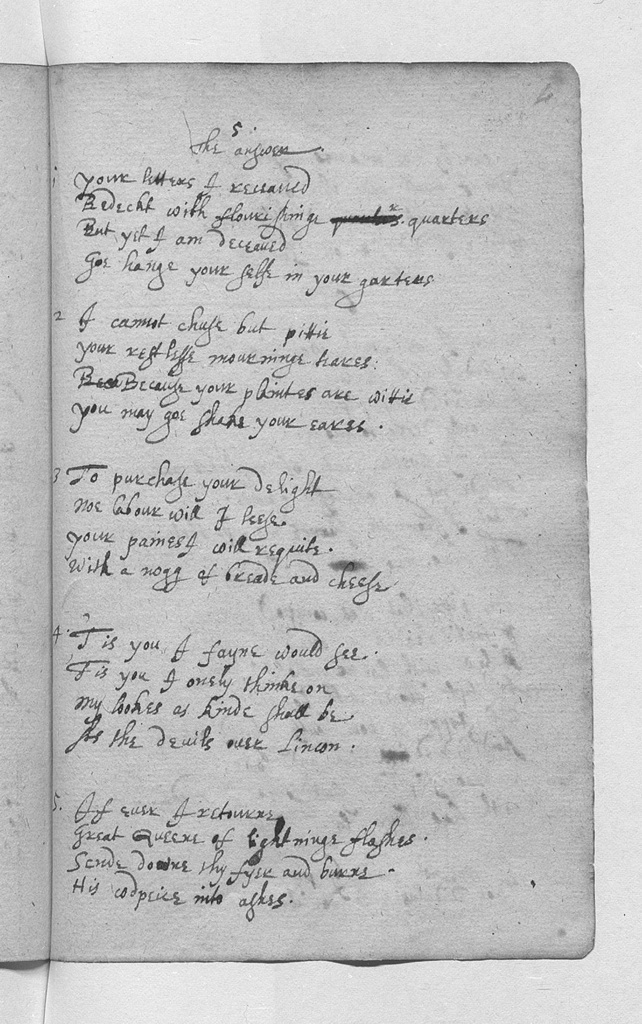 5
The answer.
1 your letters I receaued
Bedeckt with flourishinge quarters. quarters
But yet I am deceaued
Goe hange your selfe in your garters
2 I cannot chuse but pittie
your restlesse mourninge teares:
Beca Because your plaintes are wittie
you may goe shake your eares.
3 To purchase your delight
noe labour will I leese.
your paines I will requite.
With a nogg of breade and cheese
4. Tis you I fayne would see.
Tis you I onely thinke on
my lookes as kinde shall be
As the devils over Lincon.
5. If ever I retourne
Great Queene of lightninge flashes.
Sende downe thy fyer and burne.
His codpeice into ashes.